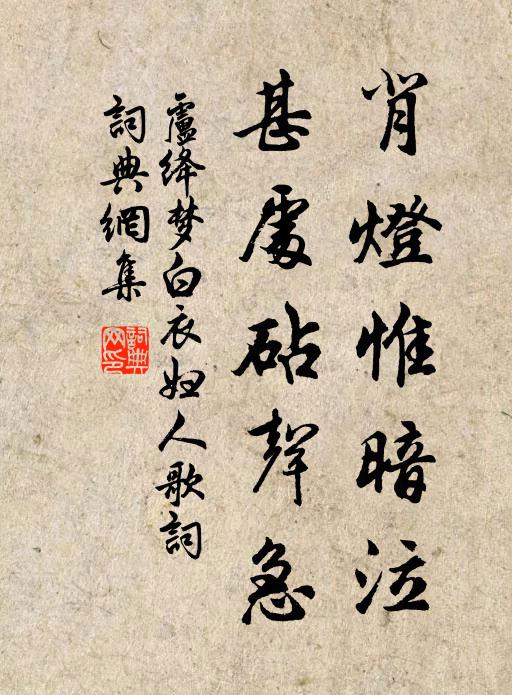 背燈惟暗泣
甚處砧聲急
盧絳梦白衣妇人歌詞
詞典網集
詞典
网印